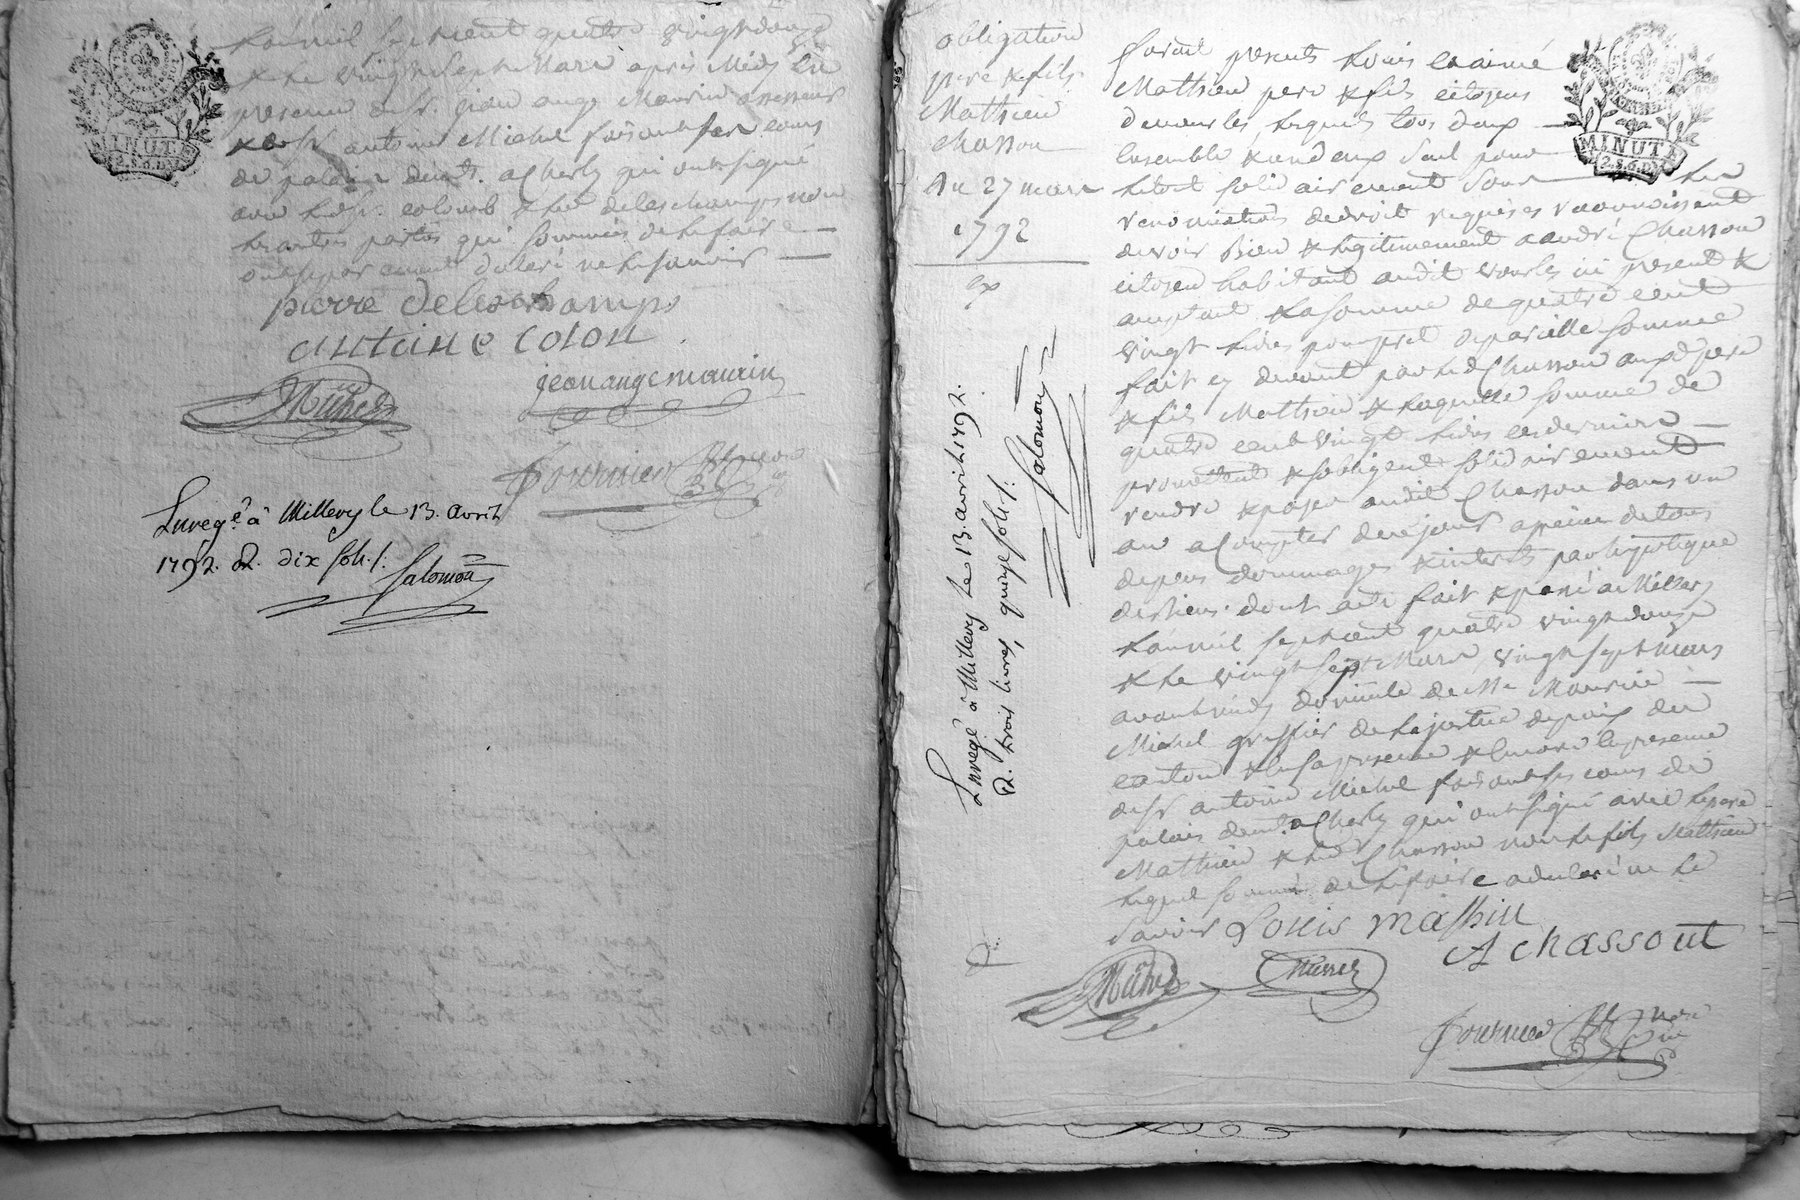 MINUTE
2.S.6.D
L'an mil sept cent quatre vingt douze
& le vingt Sept Mars après Midy En
presence de Sr. jean ange Maurin
& de Sr antoine Michel faisant ses cours
de palais dem.t a Charly qui ont signé
avec led. Sr. colomb & led delachamps non
les autres parties qui sommées de le faire
ont separement declaré ne le savoir
pierre delachamps
antoine colon
jean ange maurin
Michel
fournier
Enregé. à Millery le 13. avril
1792. R. dix sols.
Salomon
obligation
pere & fils
Mathieu
chasson
du 27 mars
1792
Enregé à Millery Le 13 avril 1792.
R. trois livres, quinze sols.
Salomon
MINUTE
2.S.6.D
furent presents Louis et aimé
Mathieu pere & fils citoyens
de vourles, lesquels tous deux
Ensemble & un d'eux seul pour
le tout solidairement sous les
renonciations de droit requises reconnoissent
devoir Bien & legitimement a andré Chasson
citoyen habitant audit vourles ici present &
acceptant la somme de quatre cent
vingt livres pour pret de pareille somme
fait cy devant par led Chasson auxd pere
& fils Mathieu & laquelle somme de
quatre cent vingt livres ces derniers
promettent & s'obligent solidairement
rendre & payer audit Chasson dans un
an a Compter de ce jour a peine de tous
depens dommages & interets par hypotique
des biens. dont acte fait & passé a Millery
L'an mil sept cent quatre vingt douze
& le vingt sept Mars vingt sept mars
avant midy domicile de Me Maurice
Michel greffier de la justice de paix du
canton & en sa presence & Encore la presence
de Sr antoine Michel faisant ses cours de
palais dem.t a Charly qui ont signé avec le pere
Mathieu & led Chasson non le fils Mathieu
lequel sommé de le faire a declaré ne le
savoir
Louis mathiu
A chassout
Michel
fournier